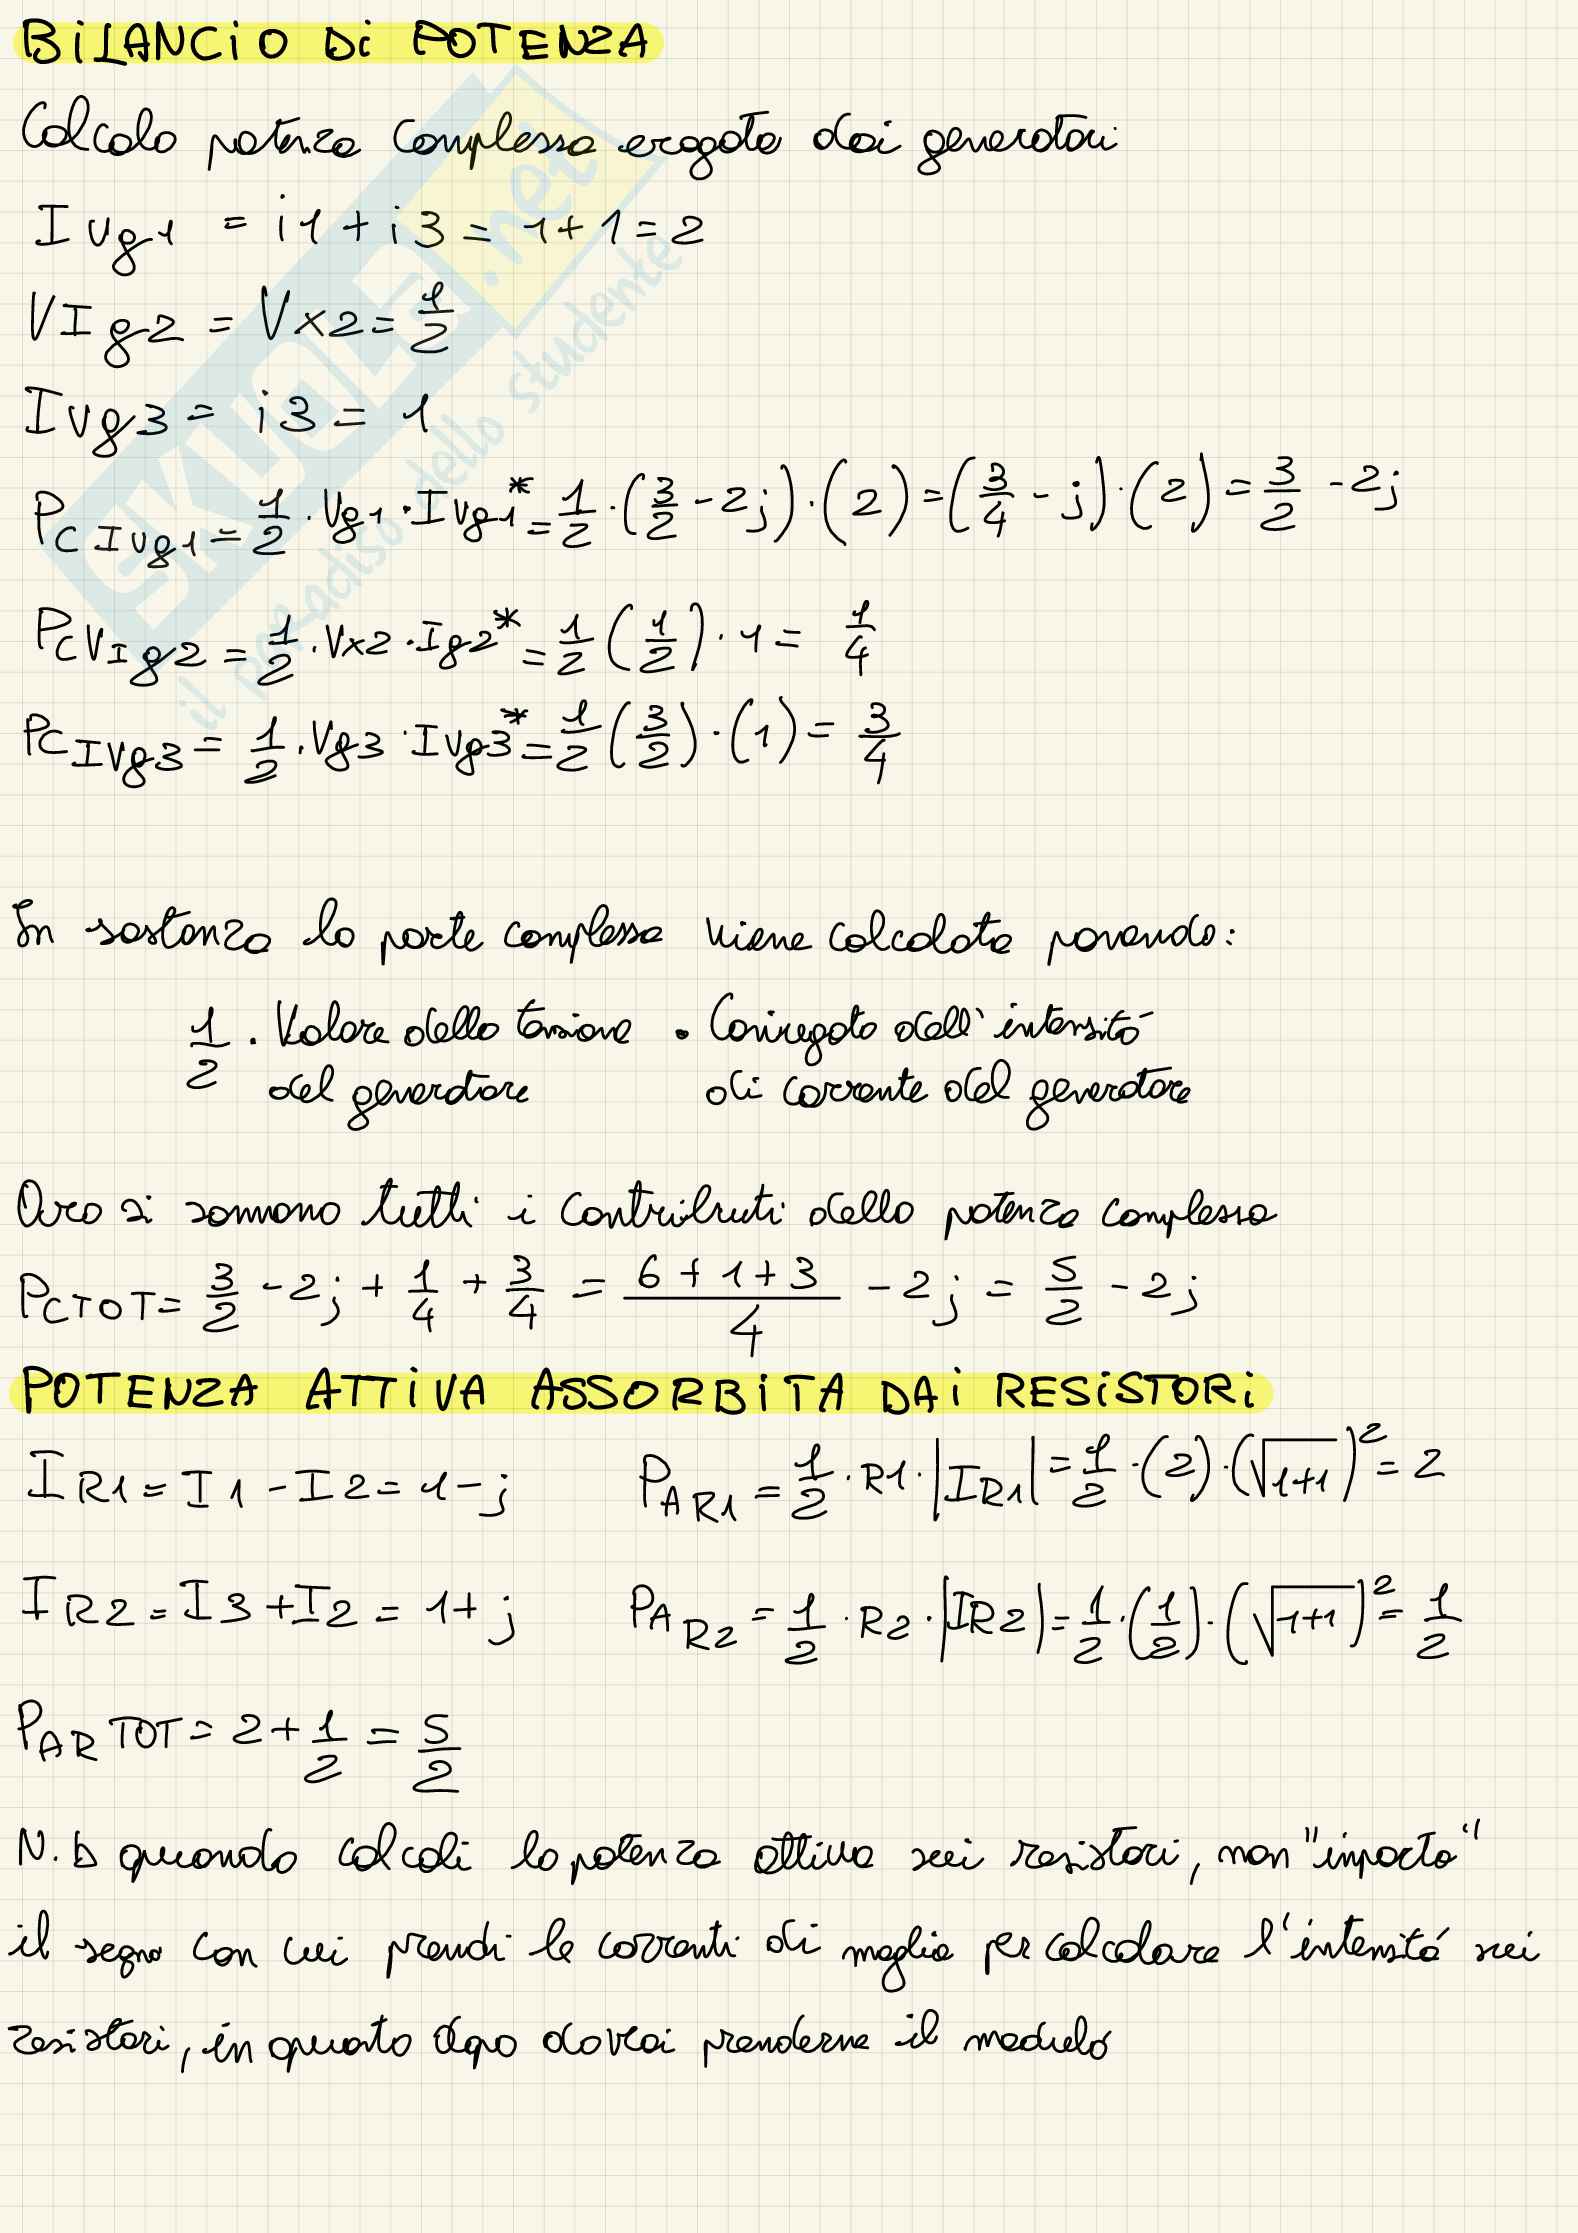 BILANCIO Di POTENZA
Calcolo potenza complessa erogata dai generatori
I_Vg1 = i1 + i3 = 1+1 = 2
V_Ig2 = Vx2 = 1/2
I_Vg3 = i3 = 1
P_C IVg1 = 1/2 · Vg1 · I_Vg1* = 1/2 · (3/2 - 2j) · (2) = (3/4 - j) · (2) = 3/2 - 2j
P_C VIg2 = 1/2 · Vx2 · Ig2* = 1/2 (1/2) · 1 = 1/4
P_C IVg3 = 1/2 · Vg3 · I_Vg3* = 1/2 (3/2) · (1) = 3/4
In sostanza la parte complessa viene calcolata ponendo:
1/2 · Valore della tensione · Coniugato dell'intensitá
del generatore di corrente del generatore
Ora si sommano tutti i contributi della potenza complessa
P_CTOT = 3/2 - 2j + 1/4 + 3/4 = (6+1+3)/4 - 2j = 5/2 - 2j
POTENZA ATTiVA ASSORBiTA DAi RESiSTORi
I_R1 = I1 - I2 = 1-j P_AR1 = 1/2 · R1 · |I_R1| = 1/2 · (2) · (√1+1)² = 2
I_R2 = I3 + I2 = 1+j P_AR2 = 1/2 · R2 · |I_R2| = 1/2 · (1/2) · (√1+1)² = 1/2
P_AR TOT = 2 + 1/2 = 5/2
N.b quando calcoli la potenza attiva sui resistori, non "importa"
il segno con cui prendi le correnti di maglia per calcolare l'intensitá sui
resistori, in quanto dopo dovrai prenderne il modulo
SKUOLA.net
il paradiso dello studente